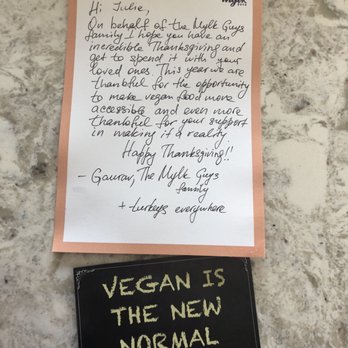 Hi Julie,
On behalf of the Mylk Guys
family I hope you have an
incredible Thanksgiving and
get to spend it with your
loved ones. This year we are
thankful for the opportunity
to make vegan food more
accessible and even more
thankful for your support
in making it a reality.
Happy Thanksgiving!!
- Gaurav, The Mylk Guys
family
+ turkeys everywhere
VEGAN IS
THE NEW
NORMAL